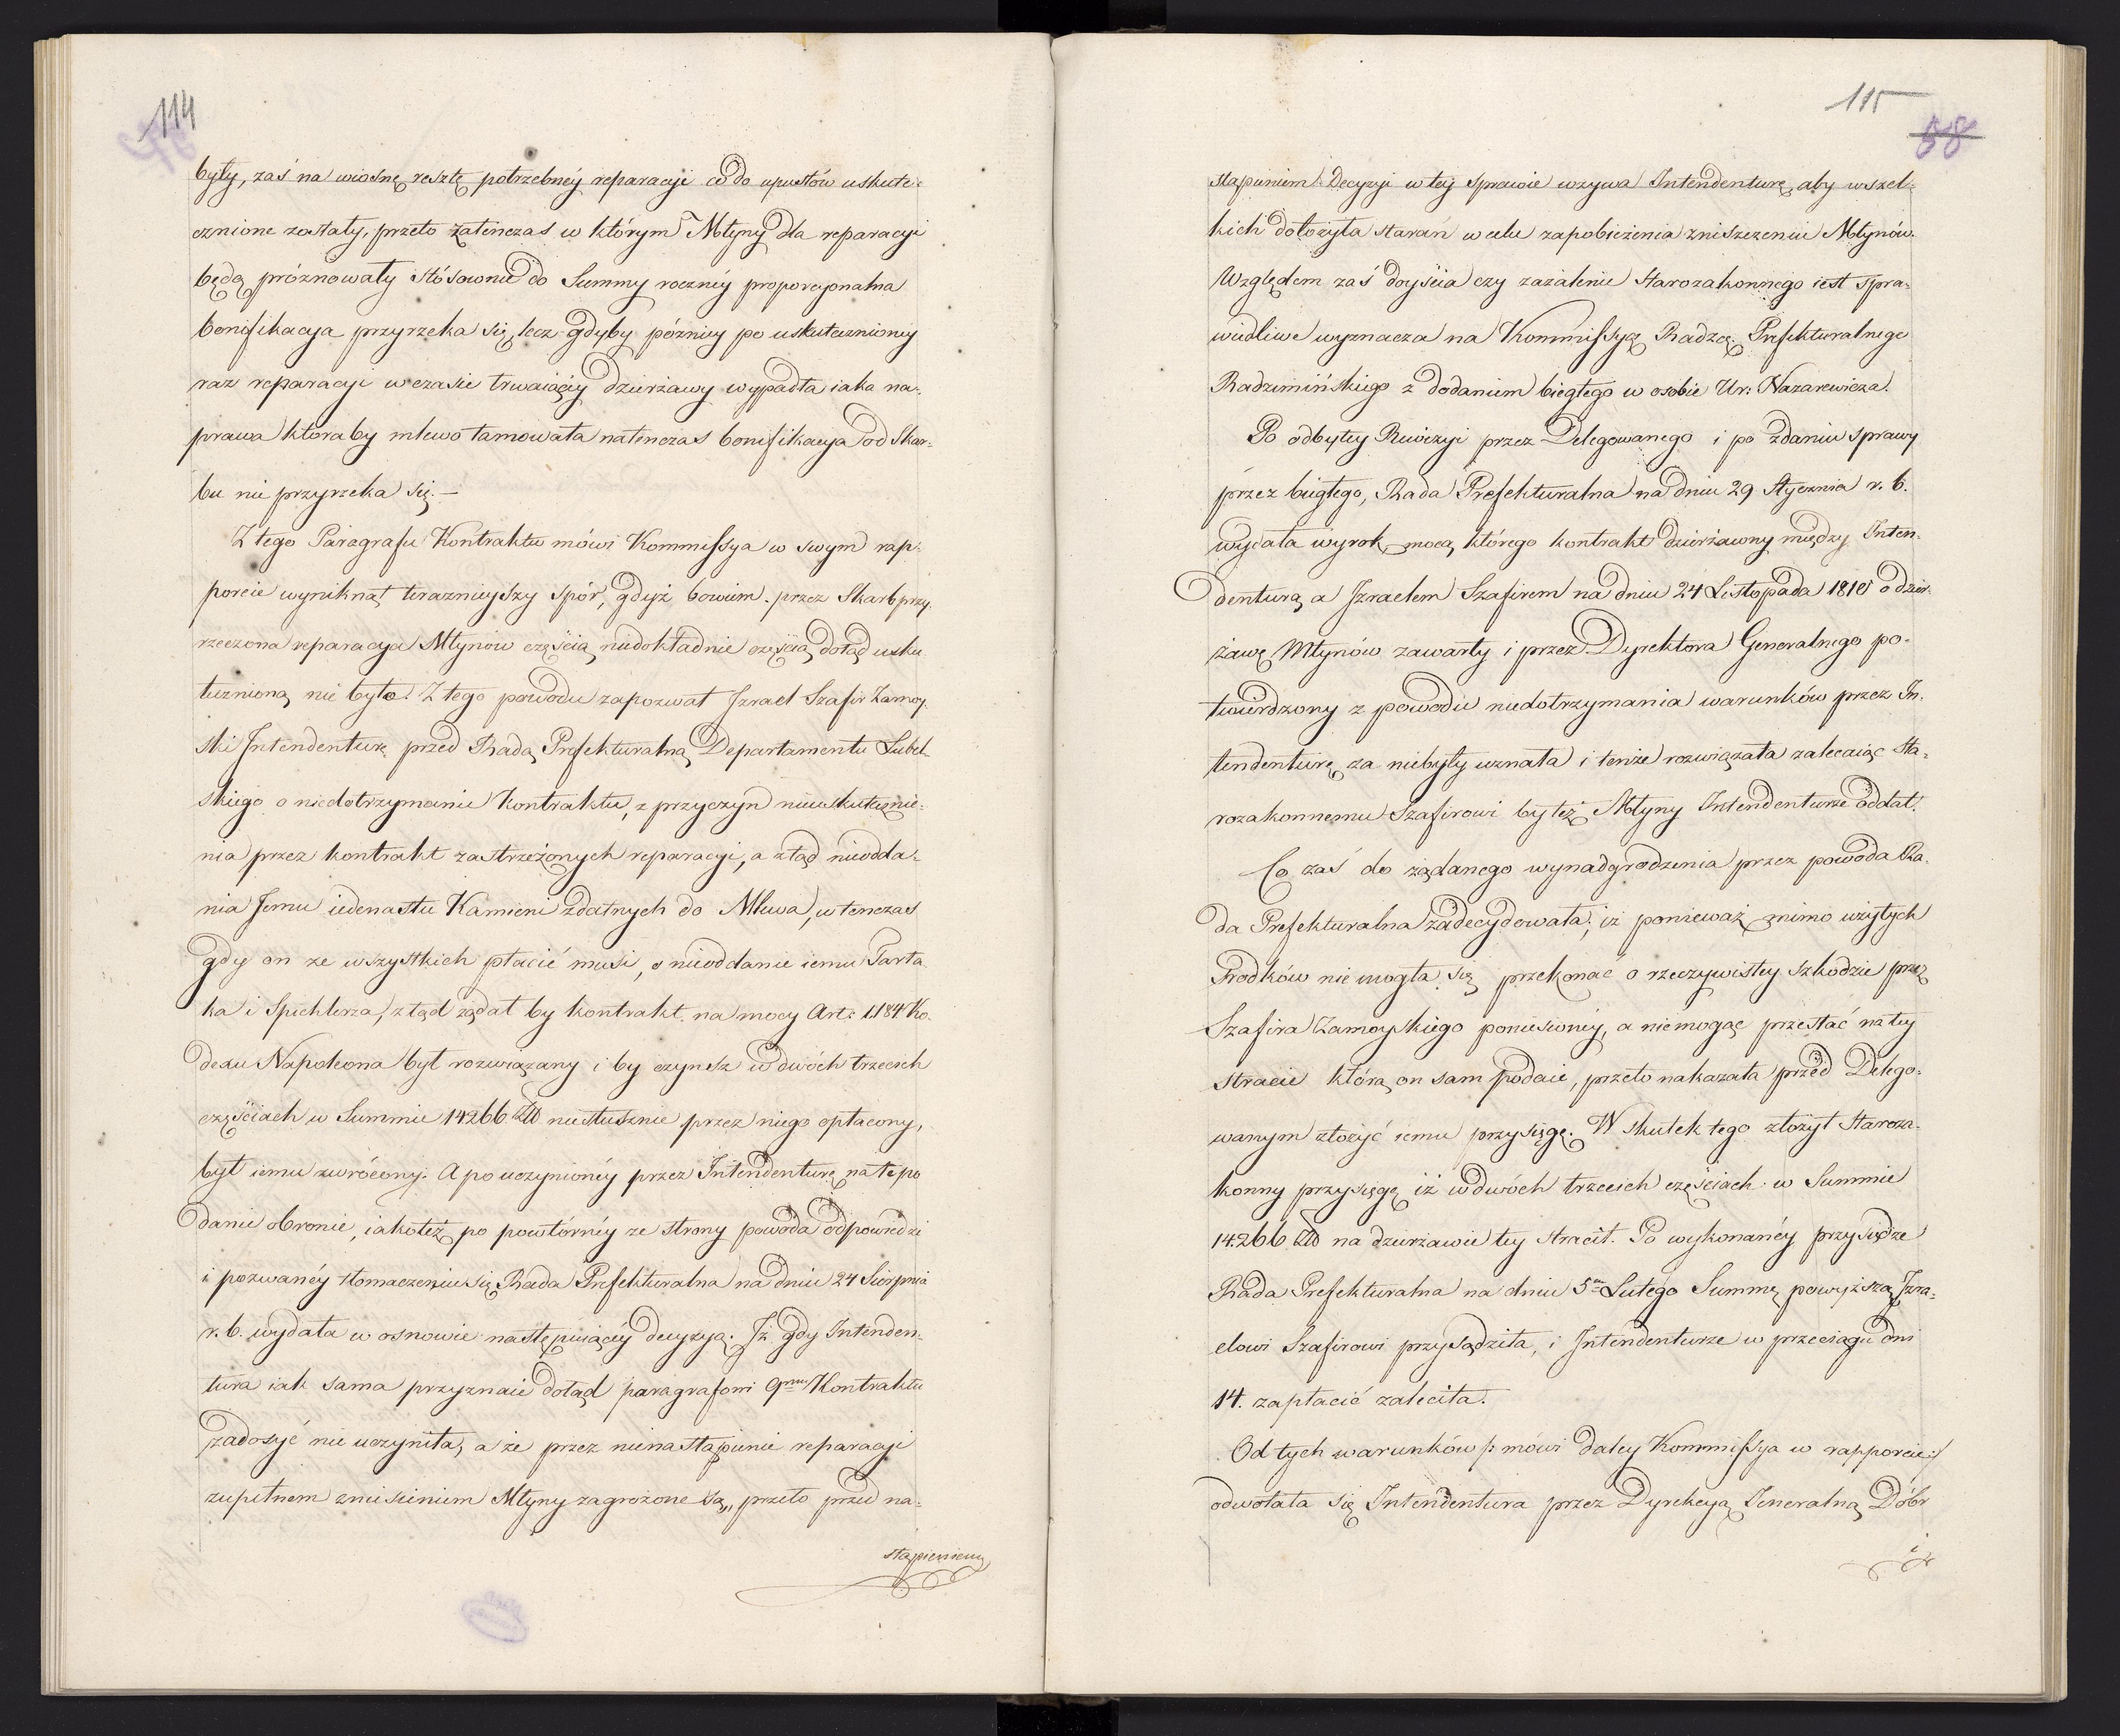 114
były, zaś na wiosnę resztę potrzebnéy reparacyi co do upustów uskute-
cznione zostały, przeto zatenczas w którym Młyny dla reparacyi
będą próznowały stósownie do Summy rocznéy proporcyonalna
bonifikacya przyrzeka się, lecz gdyby pózniey po uskutecznioney
raz reparacyi w czasie trwaiącéy dzierżawy wypadła iaka na-
prawa ktoraby mlewo tamowała natenczas bonifikacya od Skar-
bu nie przyrzeka się. —
Z tego Paragrafu Kontraktu mówi Kommissya w swym rap-
porcie wyniknął teraznieyszy spór, gdyż bowiem przez Skarb przy-
rzeczona reparacya Młynów częścią niedokładnie częścią dotąd usku-
tecznioną nie było. Z tego powodu zapozwał Jzrael Szafir Zamoy-
ski Jntendenturę przed Radą Prefekturalną Departamentu Lubel-
skiego o niedotrzymanie Kontraktu, z przyczyn nieuskutecznie-
nia przez kontrakt zastrzeżonych reparacyi, a ztąd nieodda-
nia Jemu iedenastu Kamieni zdatnych do Mlewa, w tenczas
gdy on ze wszystkich płacić musi, o nieoddanie iemu Tarta-
ka i Spichlerza, ztąd żądał by kontrakt na mocy Art: 1184 Ko-
dexu Napoleona był rozwiązany i by czynsz w dwóch trzecich
częściach w Summie 14266 Złł niesłusznie przez niego opłacony,
był iemu zwrócony. A po uczynionéy przez Intendenturę na te po
danie obronie, iakoteż po powtórnéy ze strony powoda odpowiedzi
i pozwanéy tłomaczeniu się Rada Prefekturalna na dniu 24 Sierpnia
r. b. wydała w osnowie następuiącéy decyzyą. Jż gdy Intenden-
tura iak sama przyznaie dotąd paragrafowi 9mu Kontraktu
zadosyć nie uczyniła, a że przez nienastąpienie reparacyi
zupełnem zniszieniem Młyny zagrożone są, przeto przed na-
stąpieniem
115
58
stąpieniem Decyzyi w téy sprawie wzywa Intendenturę, aby wszel-
kich dołożyła starań w celu zapobieżenia zniszczeniu Młynów.
Względem zaś doyścia czy zażalenie Starozakonnego iest spra-
wiedliwe wyznacza na Kommissyą Radzcę Prefekturalnego
Radzimińskiego z dodaniem biegłego w osobie Ur: Nazarewicza.
Po odbytey Rewizyi przez Delegowanego i po zdaniu sprawy
przez biegłego, Rada Prefekturalna na dniu 29 Stycznia r. b.
wydała wyrok, mocą którego kontrakt dzierżawny między Inten-
denturą a Jzraelem Szafirem na dniu 24 Listopada 1810 o dzier-
żawę Młynów zawarty i przez Dyrektora Generalnego po-
twierdzony z powodu niedotrzymania warunków przez In-
tendenturę za niebyły uznała i tenże rozwiązała zalecaiąc Sta-
rozakonnemu Szafirowi by też Młyny Intendenturze oddał.
Co zaś do żądanego wynadgrodzenia przez powoda Ra-
da Prefekturalna zadecydowała; iż ponieważ mimo użytych
środków nie mogła się przekonać o rzeczywistey szkodzie przez
Szafira Zamoyskiego poniesionéy, a niemogąc przestać na tey
stracie którą on sam podaie, przeto nakazała przed Delego-
wanym złożyć iemu przysięgę. W skutek tego złożył Staroza-
konny przysięgę iż w dwóch trzecich częściach w Summie
14266 Złł na dzierżawie tey stracił. Po wykonanéy przysiędze
Rada Prefekturalna na dniu 5m Lutego Summę powyższą Jzra-
elowi Szafirowi przysądziła, i Jntendenturze w przeciągu dni
14. zapłacić zaleciła.
Od tych warunków /: mówi daley Kommissya w rapporcie :/
odwołała się Intendentura przez Dyrekcyą Jeneralną Dóbr
i